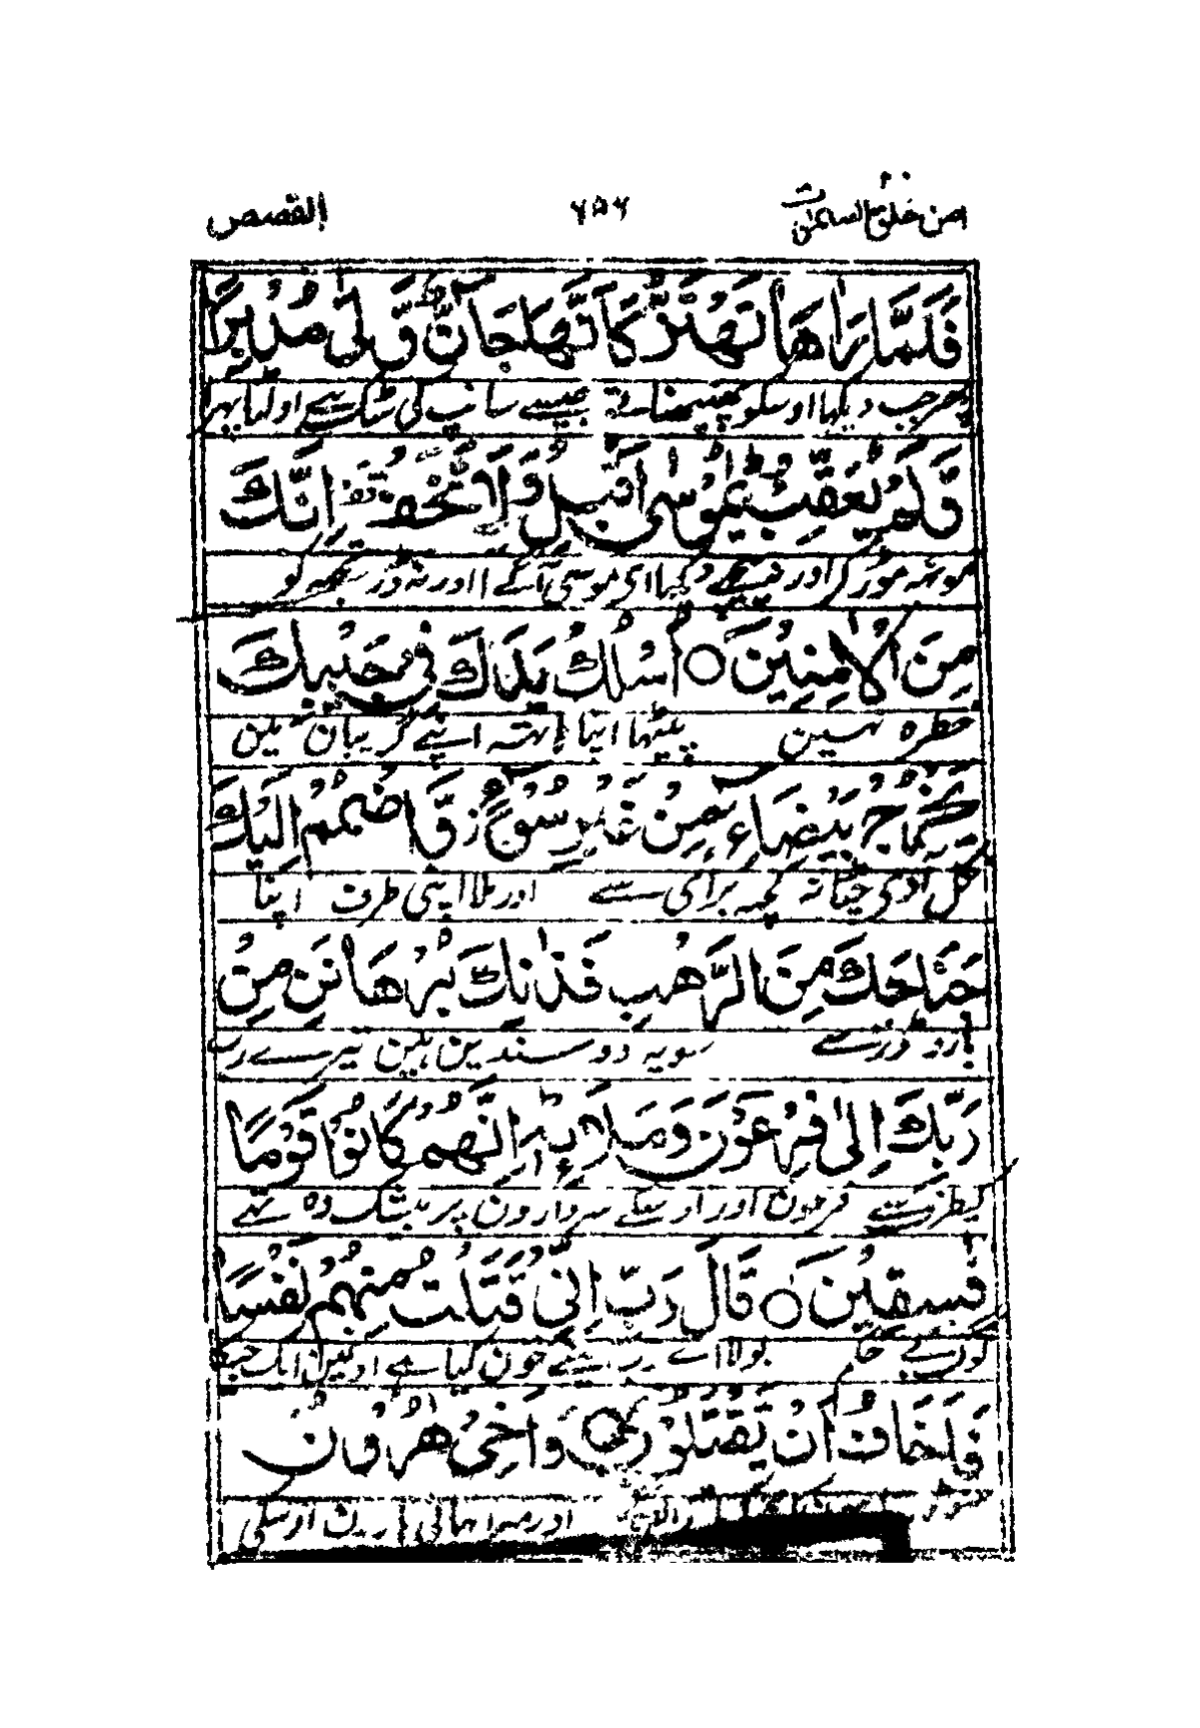 امن خلق السمٰوٰت ۶۵۶ القصص
فَلَمَّا رَاٰهَا تَهْتَزُّ كَاَنَّهَا جَآنٌّ وَّلّٰى مُدْبِرًا
پھر جب دیکھا اوسکو پھنپھناتے جیسے سانپ کی سٹک ہے اولٹا پھرا
وَّلَمْ يُعَقِّبْ يٰمُوْسٰى اَقْبِلْ وَلَا تَخَفْ اِنَّكَ
مونہہ موڑ کر اور نہ پیچھے دیکھا ای موسی آگے آ اور نہ ڈر تجھہ کو
مِنَ الْاٰمِنِيْنَ ○ اُسْلُكْ يَدَكَ فِيْ جَيْبِكَ
خطرہ نہین پیٹھا اپنا ہاتہہ اپنے گریبان مین
تَخْرُجْ بَيْضَآءَ مِنْ غَيْرِ سُوْٓءٍ وَّاضْمُمْ اِلَيْكَ
نکل آوی چٹا نہ کچہہ برائی سے اور ملا اپنی طرف اپنا
جَنَاحَكَ مِنَ الرَّهْبِ فَذٰنِكَ بُرْهَانٰنِ مِنْ
بازو ڈر سے سو یہ دو سندین ہین تیرے رب
رَّبِّكَ اِلٰى فِرْعَوْنَ وَمَلَا۟ئِهٖ اِنَّهُمْ كَانُوْا قَوْمًا
کیطرف سے فرعون اور اوسکے سردارون پر بیشک وہ تہے
فٰسِقِيْنَ ○ قَالَ رَبِّ اِنِّيْ قَتَلْتُ مِنْهُمْ نَفْسًا
لوگ بے حکم بولا اے رب مینے خون کیا ہے اونمین ایک جی
فَاَخَافُ اَنْ يَّقْتُلُوْنِ ○ وَاَخِيْ هٰرُوْنُ
سو ڈر اور میرا بھائی ہارون اوسکی